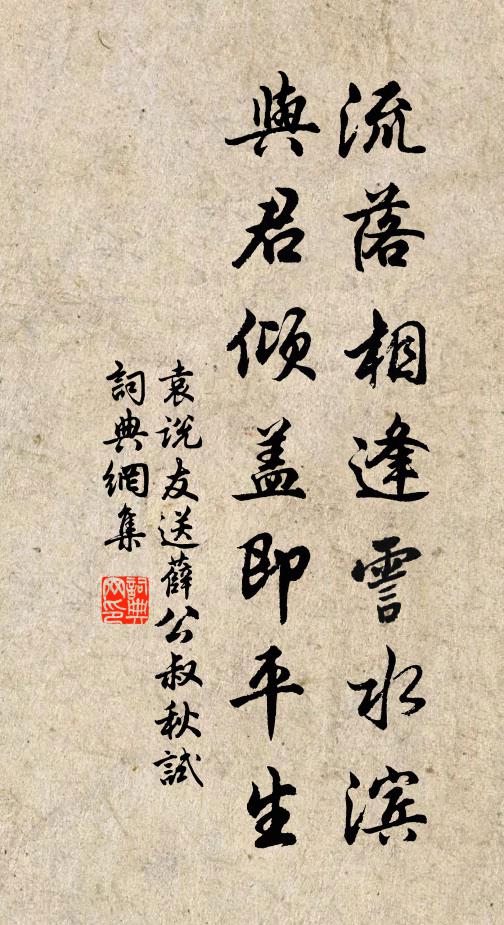 流落相逢霅水滨
與君倾盖即平生
袁说友送薛公叔秋試
詞典網集
詞典网印